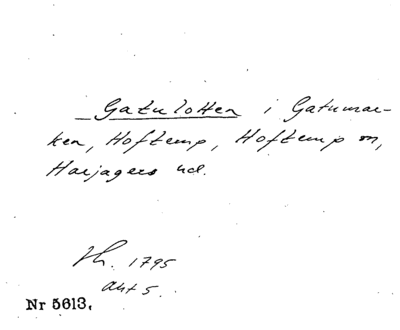 Gatulotten i Gatumar-
ken, Hoftemp, Hoftemp sn,
Harjagers hd.
Sk. 1795
akt 5.
Nr 5613.